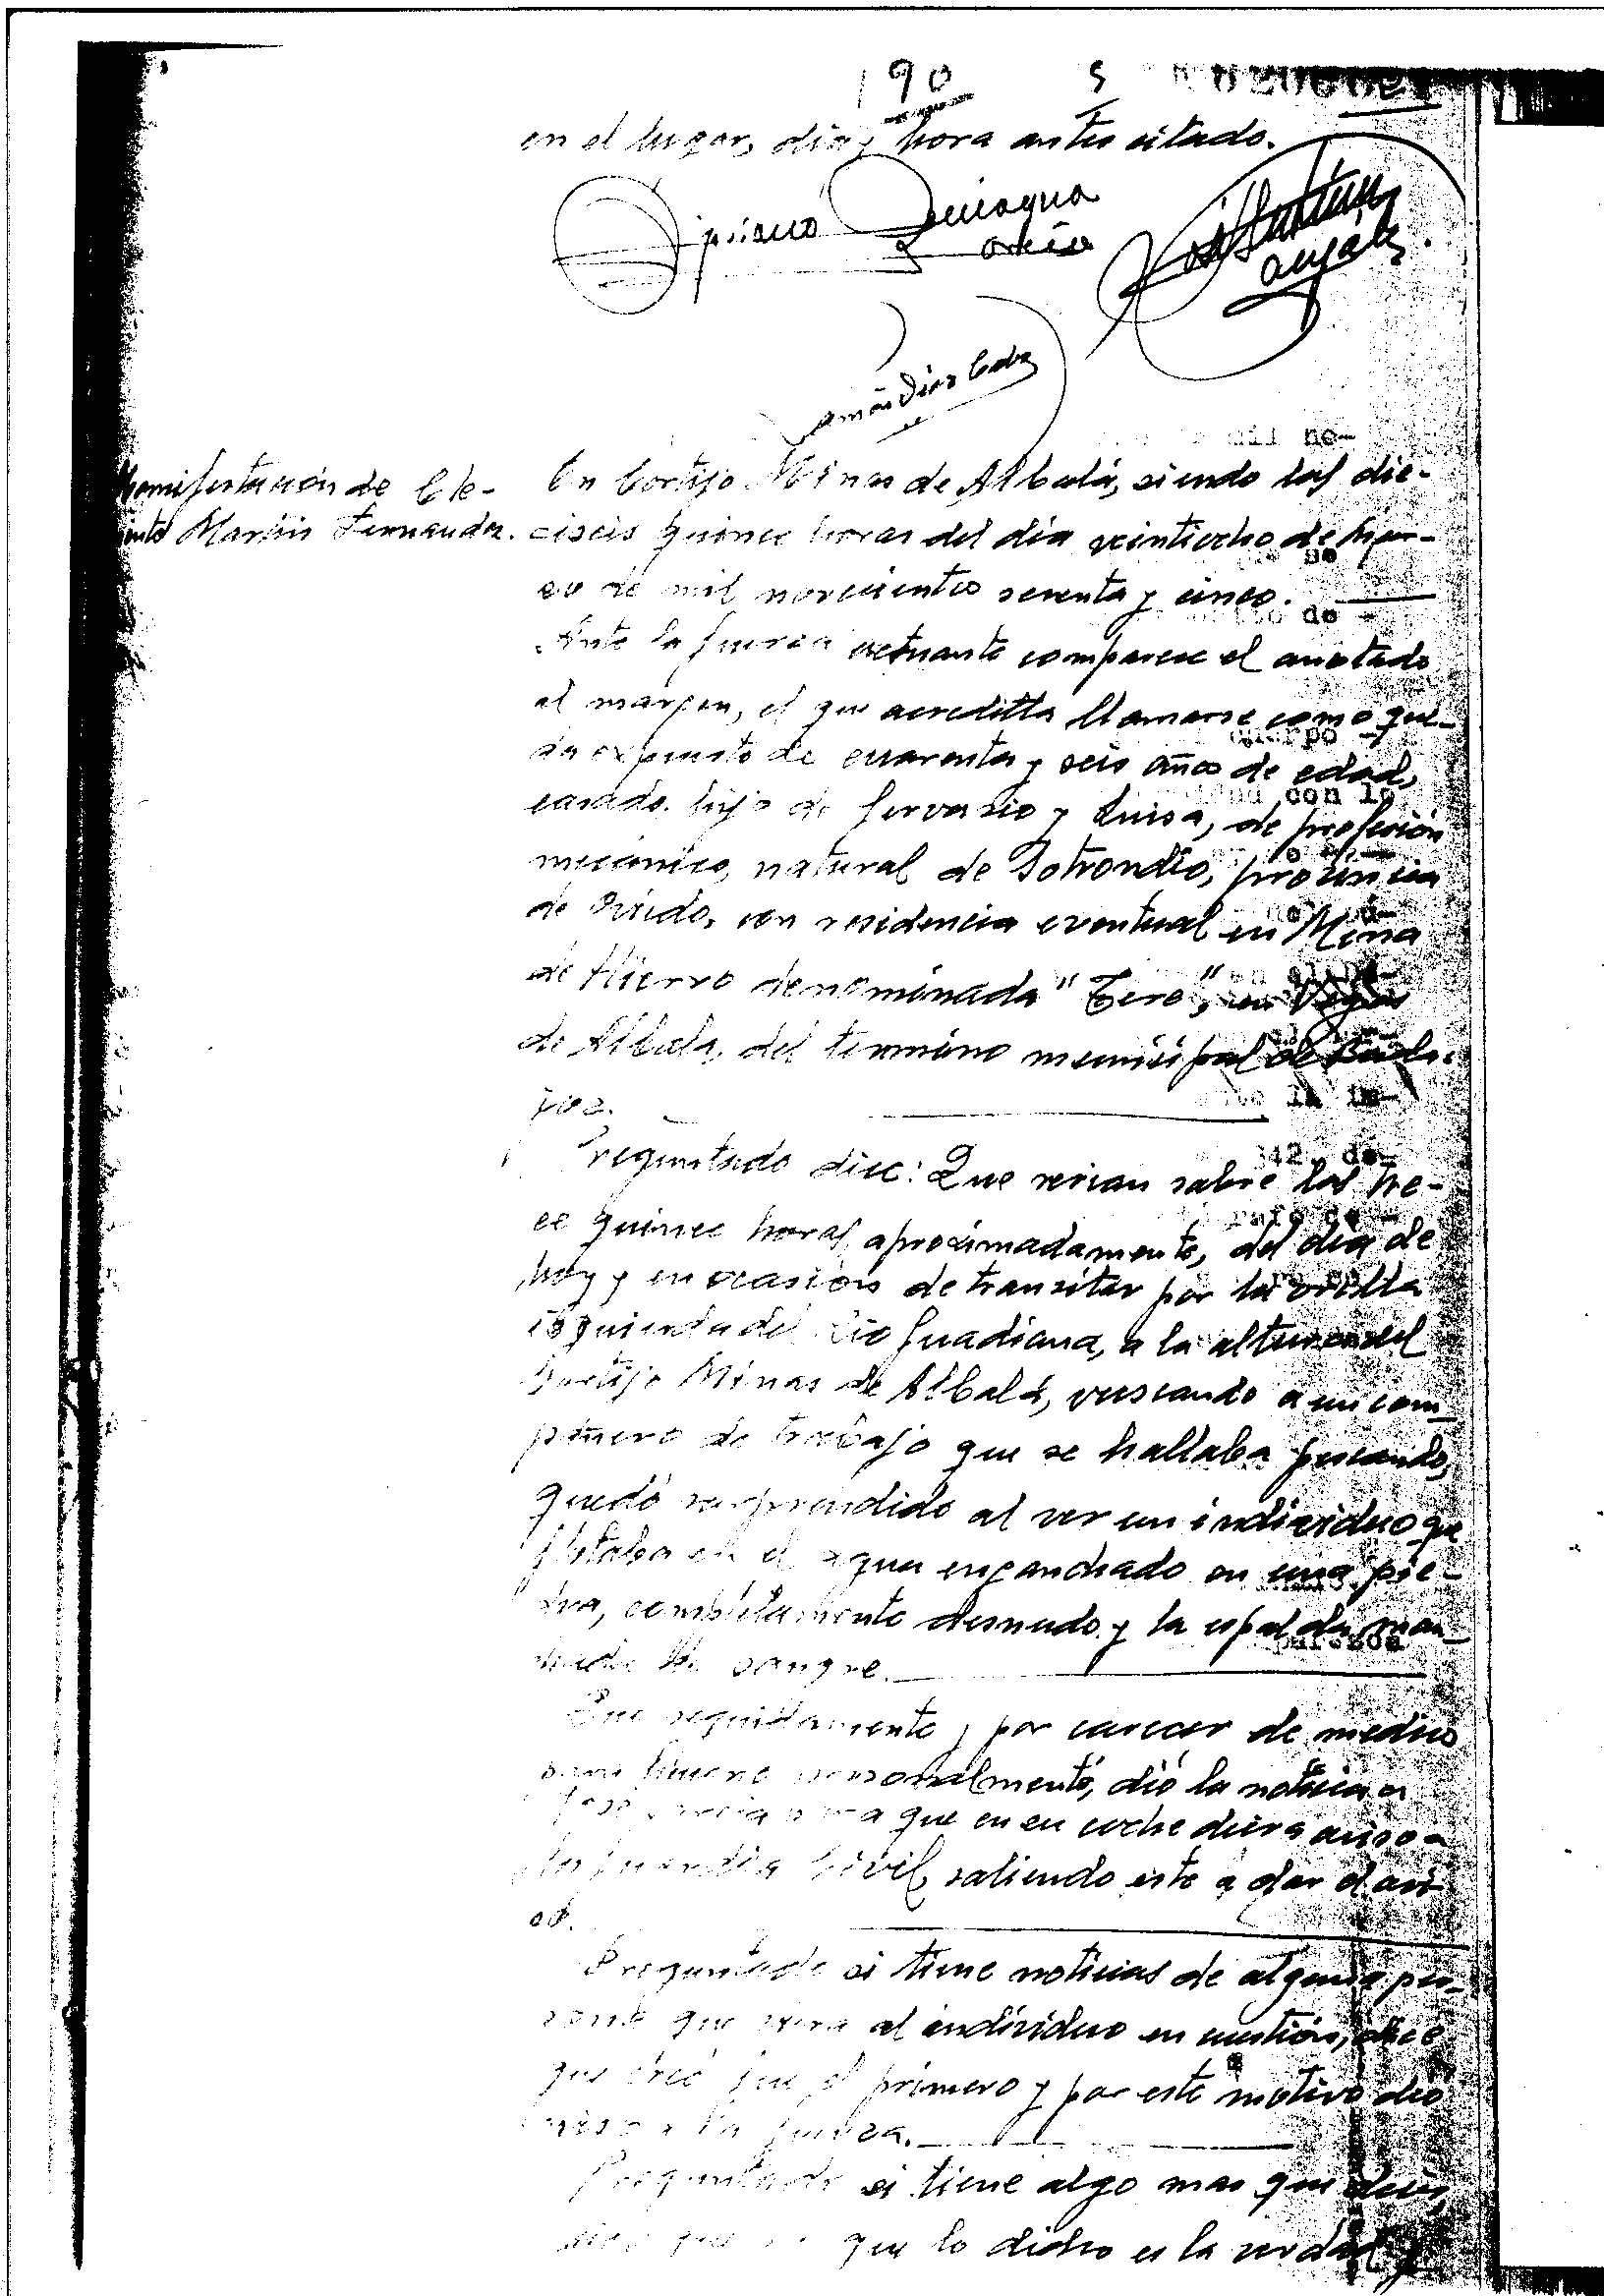 190 5
en el lugar, dia y hora antes citado.
Cipriano
Ramón Diaz
Manifestación de Cle-
mente Martin Fernandez.
En Cortijo Minas de Albalá, siendo las die-
ciseis quince horas del día veintiocho de Mar-
zo de mil novecientos setenta y cinco.
Ante la fuerza actuante comparece el anotado
al margen, el que acreditta llamarse como que-
da expuesto de cuarenta y seis años de edad,
casado. hijo de Gervasio y Luisa, de profesión
mecánico, natural de Sotrondio, provincia
de Oviedo, con residencia eventual en Mina
de Hierro denominada "Tere", en Vegas
de Albala, del termino municipal de Bada-
joz.
Preguntado dice: Que serian sobre las tre-
ce quince horas, aproximadamente, del dia de
hoy y en ocasión de transitar por la orilla
izquierda del Rio Guadiana, a la altura del
Cortijo Minas de Albalá, vuscando a un com-
pañero de trabajo que se hallaba pescando,
quedó sorprendido al ver un individuo que
flotaba en el agua enganchado en una pie-
dra, completamente desnudo y la espalda man-
chada de sangre.
Que seguidamente y por carecer de medios
para hacerlo personalmente, dió la noticia a
para que en su coche diera aviso a
la Guardia Civil, saliendo este a dar el avi-
so.
Preguntado si tiene noticias de alguna per-
sona que viera al individuo en cuestión, dice
que creé fue el primero y por este motivo dio
aviso a la fuerza.
Preguntado si tiene algo mas que decir,
dice que no que lo dicho es la verdad y